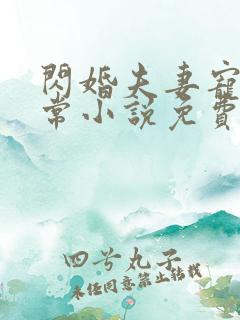 閃婚夫妻寵
常小說免費
四兮丸子
未經同意禁止轉載